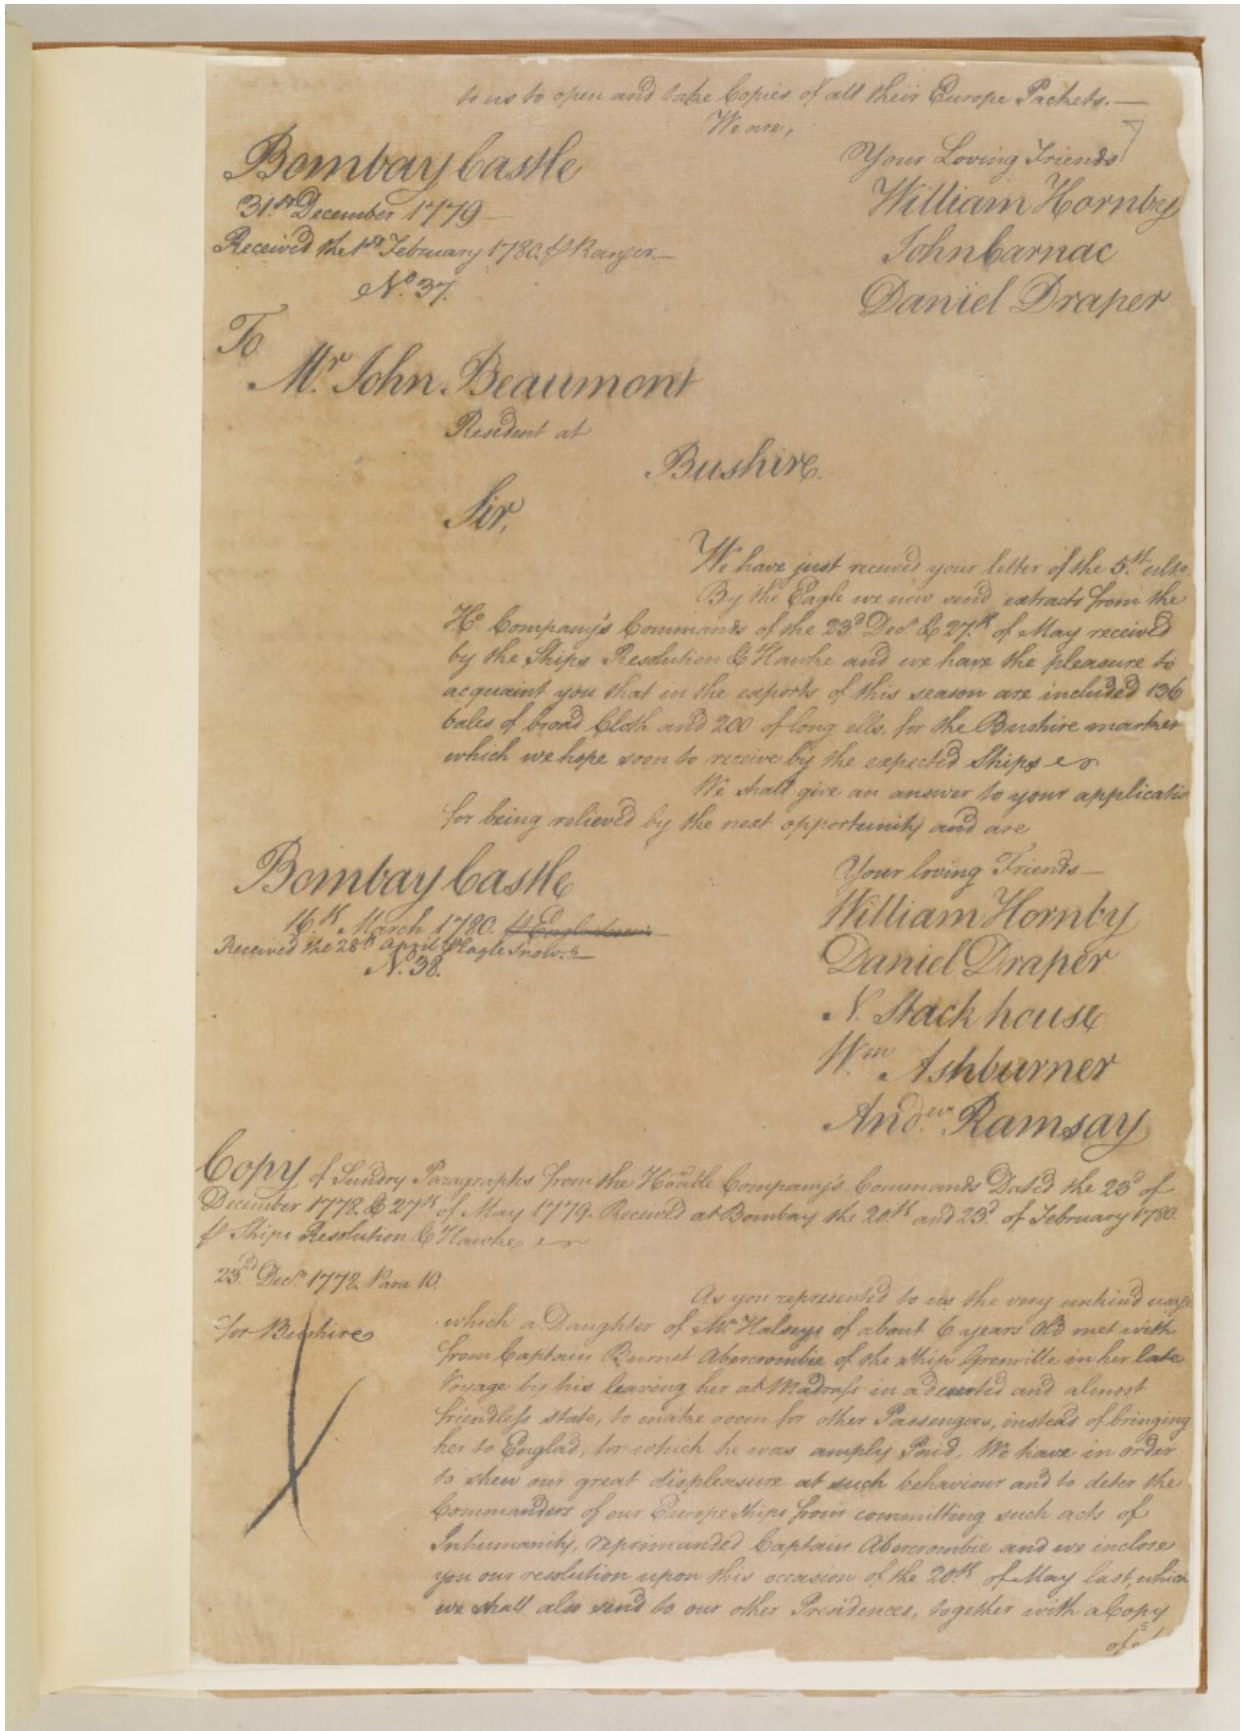 to us to open and take Copies of all their Europe Packets.—
We are,
Your Loving Friends
Bombay Castle
William Hornby
31st December 1779
John Carnac
Received the 1st February 1780. Ranger.—
Daniel Draper
No. 37.
To
Mr. John Beaumont
Resident at
Bushire.
Sir,
We have just received your letter of the 5th ulto
By the Eagle we now send extracts from the
Ho. Company's Commands of the 23d Decr & 27th of May received
by the Ships Resolution & Hawke and we have the pleasure to
acquaint you that in the exports of this season are included 136
bales of broad Cloth and 200 of long ells, for the Bushire market
which we hope soon to receive by the expected Ships
We shall give an answer to your applicatio
for being relieved by the next opportunity and are
Bombay Castle
Your loving Friends—
16th March 1780.
William Hornby
Received the 28th April Eagle Snow.
Daniel Draper
No. 38.
N. Stackhouse
Wm. Ashburner
Andw. Ramsay
Copy of Sundry Paragraphs from the Honble Company's Commands Dated the 23d of
December 1778 & 27th of May 1779. Received at Bombay the 20th and 23d of February 1780.
Ships Resolution & Hawke
23d Decr 1778. Para 10.
As you represented to us the very unkind usage
for Bushire
which a Daughter of Mr. Halseys of about 6 years Old met with
from Captain Burnet Abercrombie of the ship Grenville in her late
Voyage by his leaving her at Madrass in a deserted and almost
friendless state, to make room for other Passengers, instead of bringing
her to Englad, for which he was amply Paid, We have in order
to shew our great displeasure at such behaviour and to deter the
Commanders of our Europe Ships from committing such acts of
Inhumanity, reprimanded Captain Abercrombie and we inclose
you our resolution upon this occasion of the 20th of May last, which
we shall also send to our other Presidences, together with a Copy
of